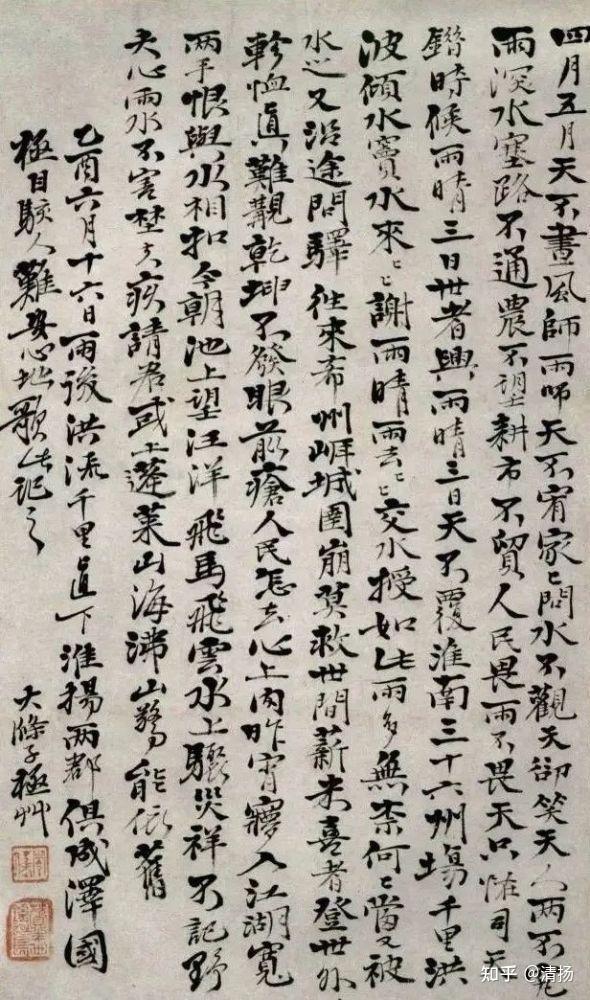 四月五月天不晝風師雨師天不宥家〻問水不觀天卻笑天人兩不
雨深水塞路不通農不望耕市不貿人民畏雨不畏天只恠司天
錯時候雨晴三日世者興雨晴三日天不覆淮南三十六州場千里洪
波傾水竇水來〻謝雨晴雨去〻交水授如此雨多無柰何〻當又被
水又沿途問驛往來希州城圍崩莫救世間薪米喜者登世外
軫恤真難觀乾坤不發眼前瘡人民怎去心上肉昨宵寢入江湖寬
兩手恨與水相扣今朝池上望汪洋飛馬飛雲水上驟災祥不記野
夫心雨水不害埜夫疚請君或上蓬萊山海沸山驚能依舊
乙酉六月十六日雨後洪流千里直下淮揚兩郡俱成澤國
極目駭人難安心地歌此記之
大滌子極艸
知乎 @清扬